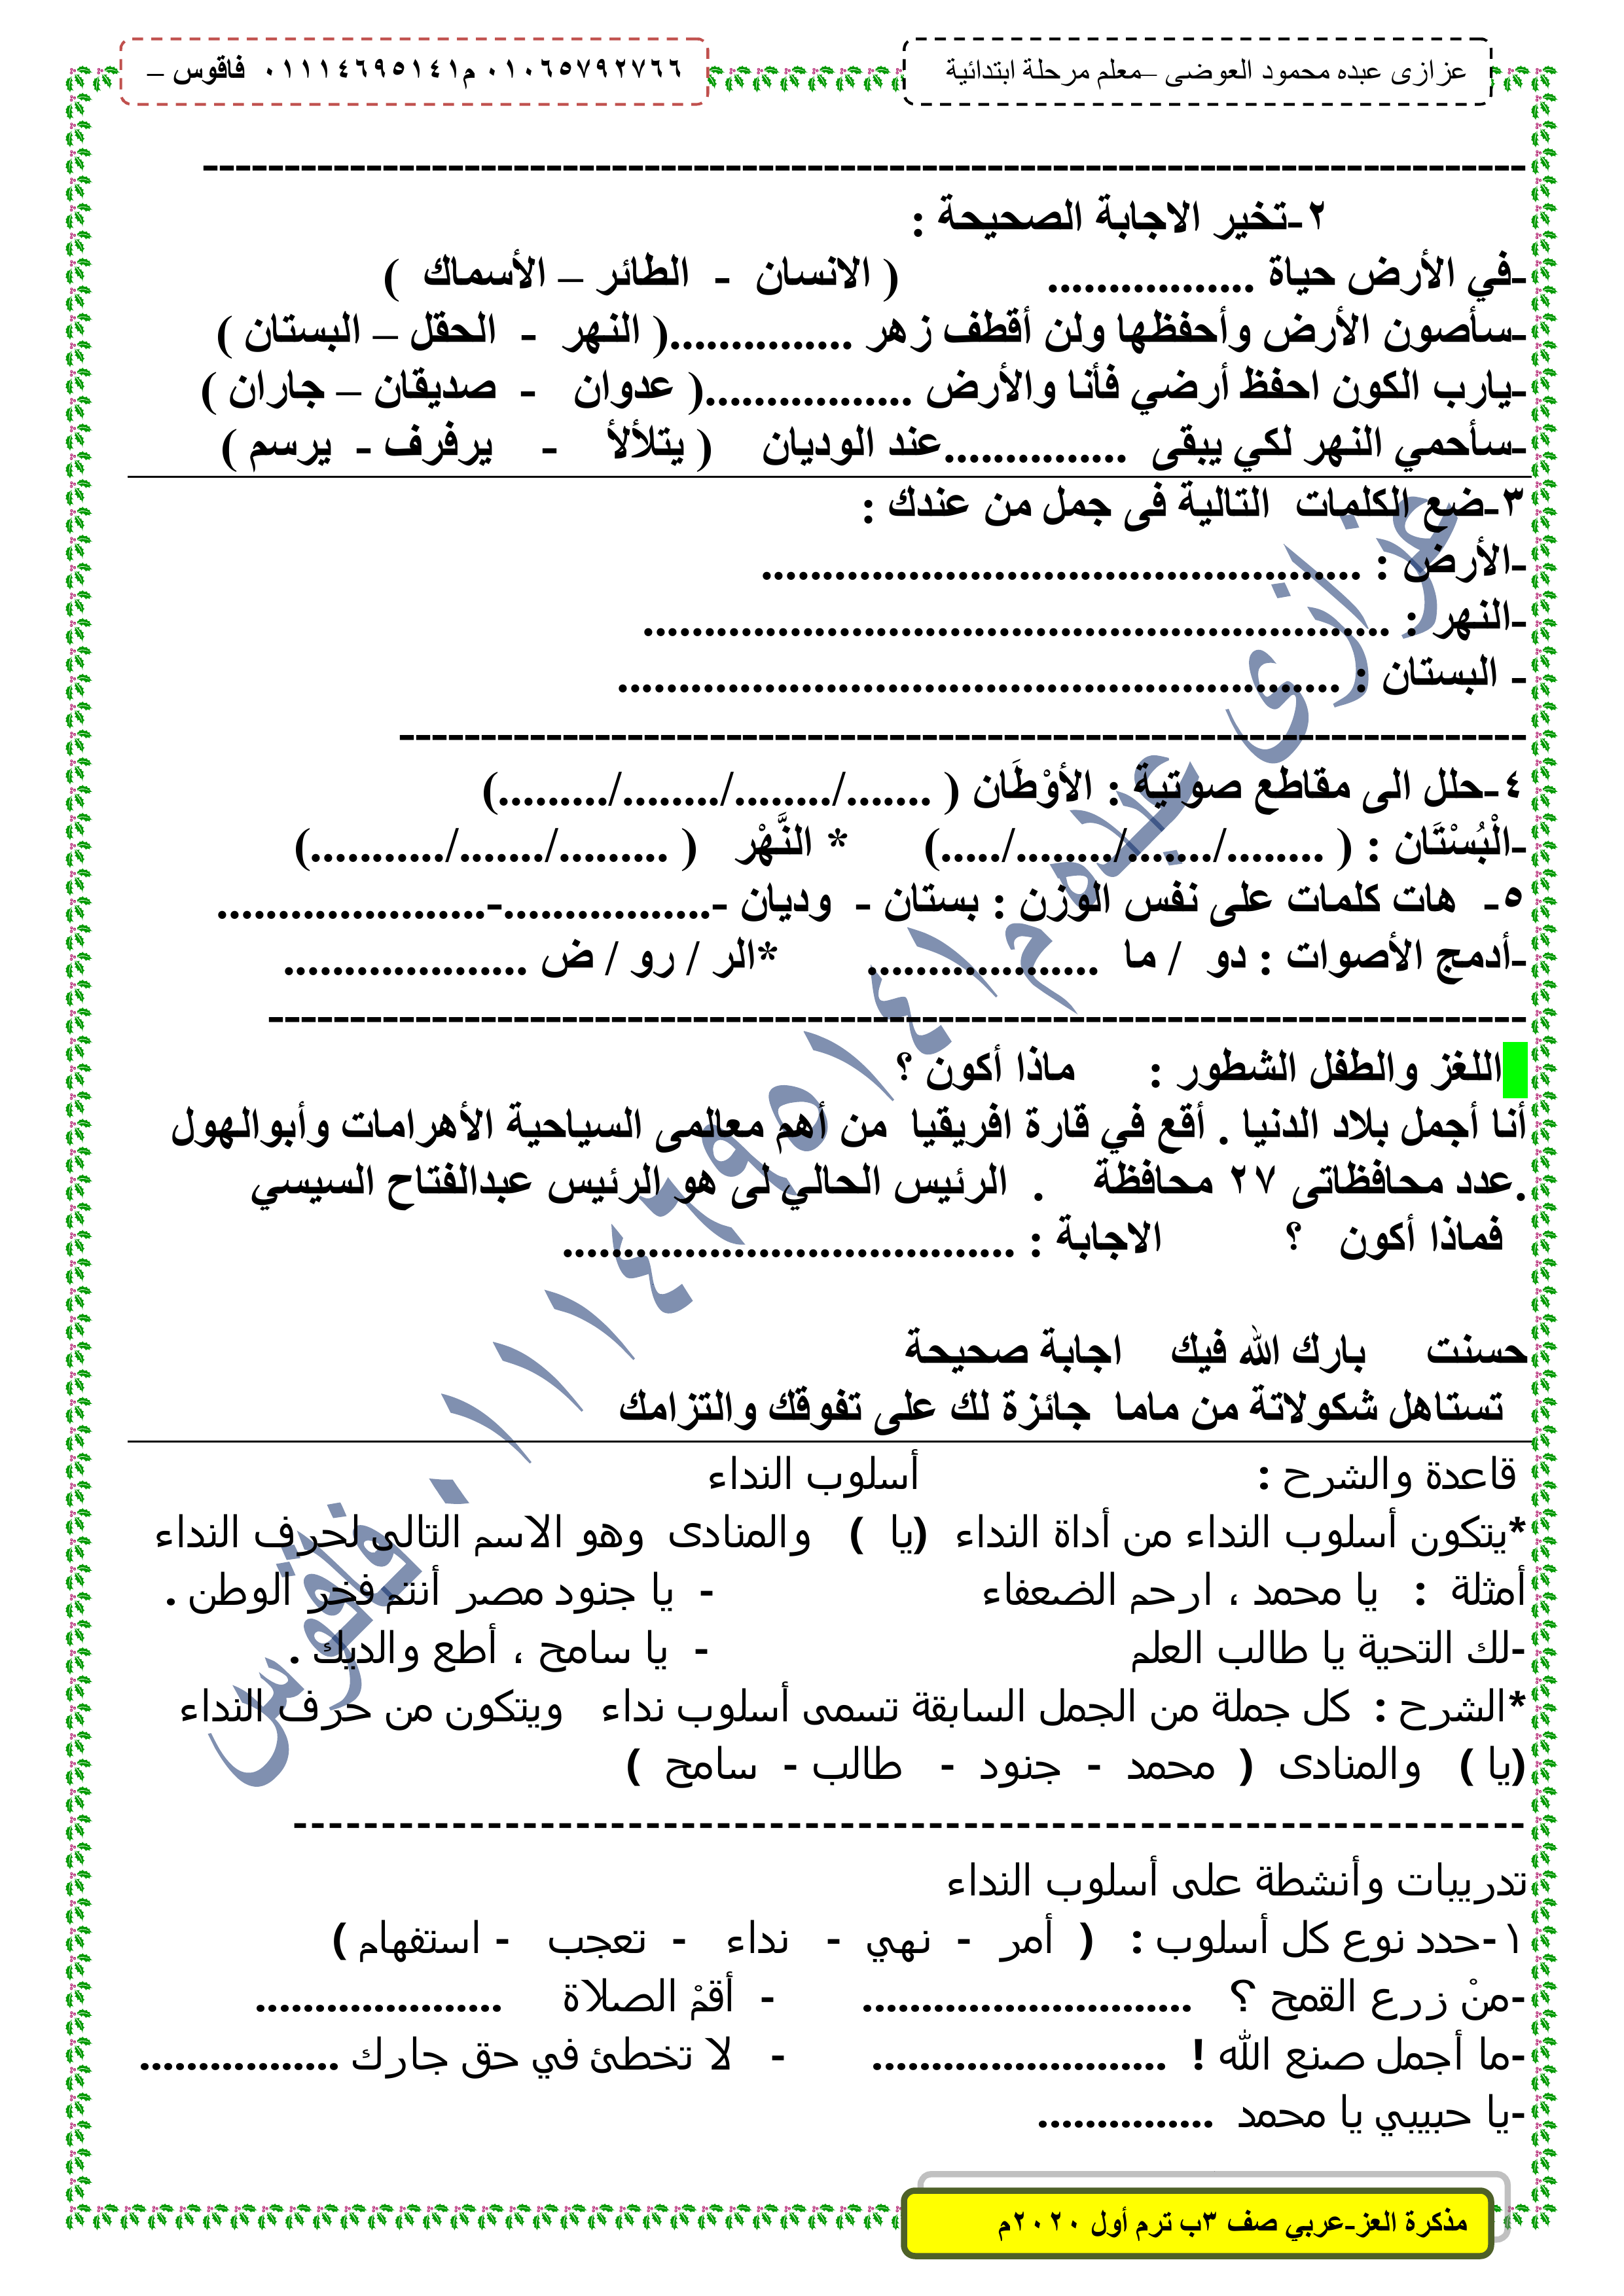 عزازى عبده محمود العوضى –معلم مرحلة ابتدائية
٠١٠٦٥٧٩٢٧٦٦ م٠١١١٤٦٩٥١٤١ فاقوس –
٢-تخير الاجابة الصحيحة :
-في الأرض حياة ................. ( الانسان - الطائر – الأسماك )
-سأصون الأرض وأحفظها ولن أقطف زهر ...............( النهر - الحقل – البستان )
-يارب الكون احفظ أرضي فأنا والأرض .................( عدوان - صديقان – جاران )
-سأحمي النهر لكي يبقى ...............عند الوديان ( يتلألأ - يرفرف - يرسم )
٣-ضع الكلمات التالية فى جمل من عندك :
-الأرض : .................................................
-النهر : .............................................................
- البستان : ...........................................................
٤-حلل الى مقاطع صوتية : الأوْطَان ( ......./......../......../.........)
-الْبُسْتَان : ( ......../......./......../.....) * النَّهْر ( ........./......./...........)
٥- هات كلمات على نفس الوزن : بستان - وديان -.................-......................
-أدمج الأصوات : دو / ما ................... *الر / رو / ض ....................
اللغز والطفل الشطور : ماذا أكون ؟
أنا أجمل بلاد الدنيا . أقع في قارة افريقيا من أهم معالمى السياحية الأهرامات وأبوالهول
.عدد محافظاتى ٢٧ محافظة . الرئيس الحالي لى هو الرئيس عبدالفتاح السيسي
فماذا أكون ؟ الاجابة : .....................................
حسنت بارك الله فيك اجابة صحيحة
تستاهل شكولاتة من ماما جائزة لك على تفوقك والتزامك
قاعدة والشرح : أسلوب النداء
*يتكون أسلوب النداء من أداة النداء (يا ) والمنادى وهو الاسم التالى لحرف النداء
أمثلة : يا محمد ، ارحم الضعفاء - يا جنود مصر أنتم فخر الوطن .
-لك التحية يا طالب العلم - يا سامح ، أطع والديك .
*الشرح : كل جملة من الجمل السابقة تسمى أسلوب نداء ويتكون من حرف النداء
(يا ) والمنادى ( محمد - جنود - طالب - سامح )
تدريبات وأنشطة على أسلوب النداء
١-حدد نوع كل أسلوب : ( أمر - نهي - نداء - تعجب - استفهام )
-منْ زرع القمح ؟ ............................ - أقمْ الصلاة .....................
-ما أجمل صنع الله ! ......................... - لا تخطئ في حق جارك .................
-يا حبيبي يا محمد ...............
مذكرة العز-عربي صف ٣ب ترم أول ٢٠٢٠م
عزازى عبده م٠١١١٤٦٩٥١٤١ فاقوس